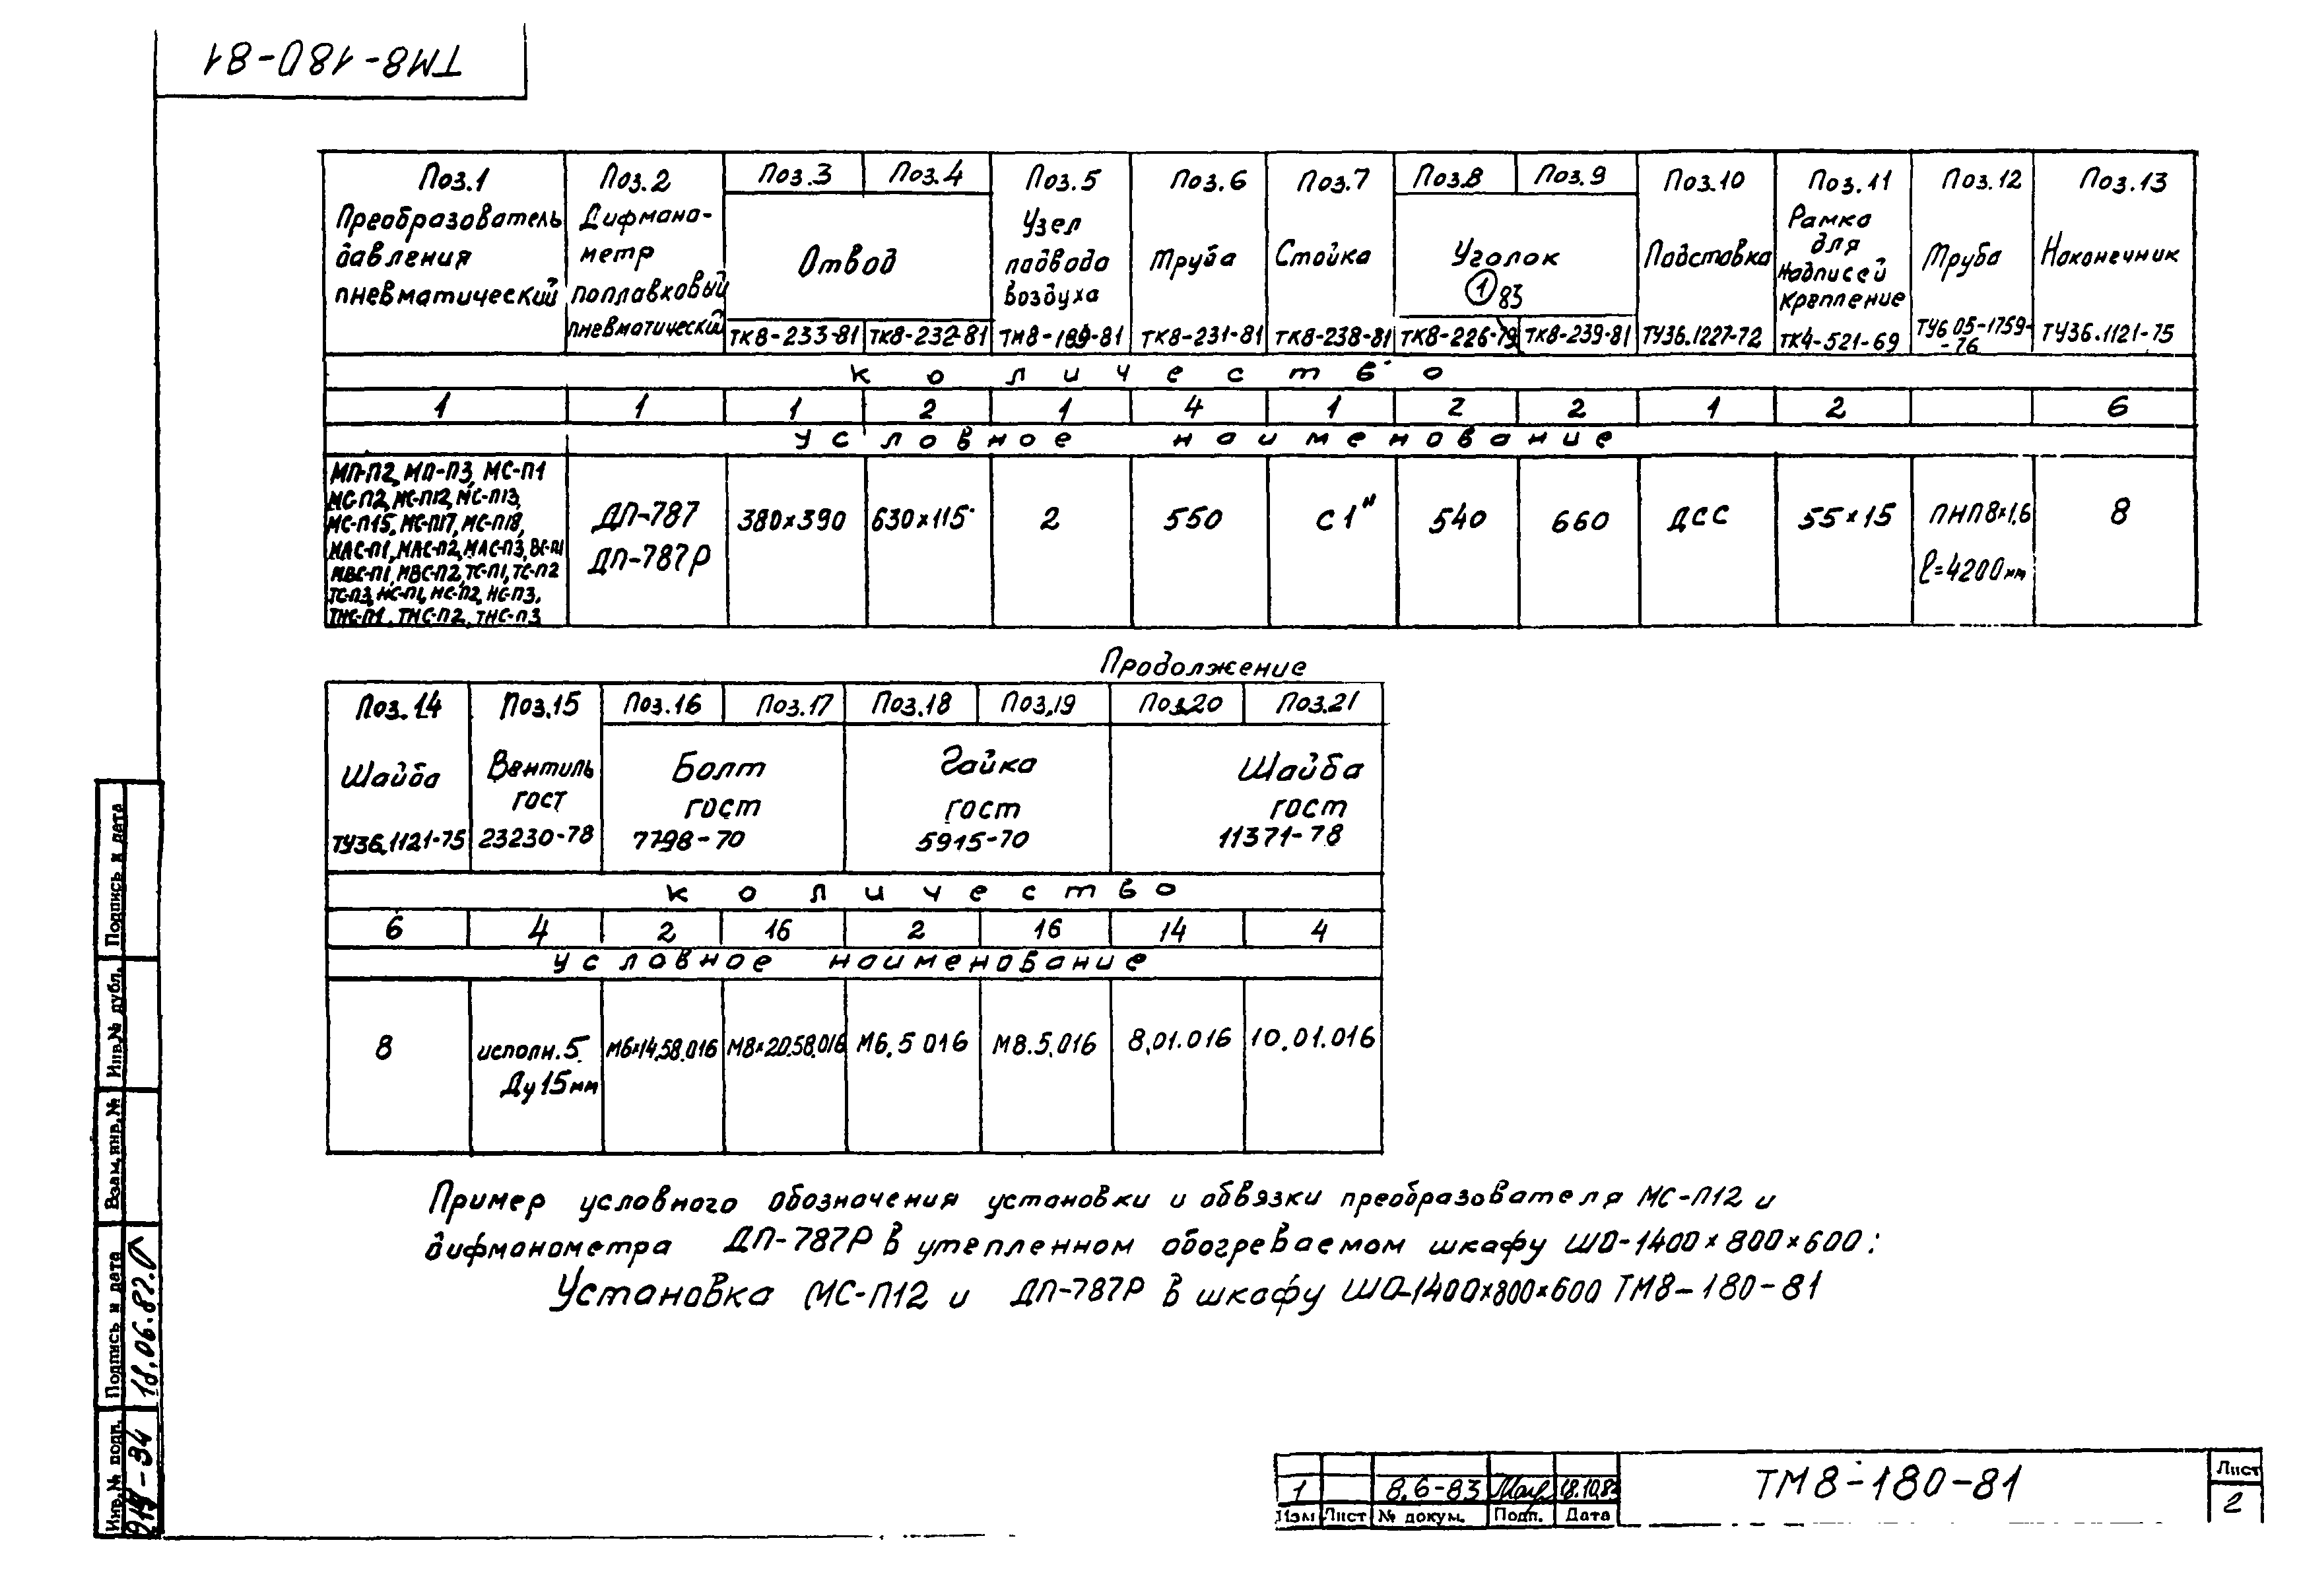 ТМ8-180-81
Поз.1 Поз.2 Поз.3 Поз.4 Поз.5 Поз.6 Поз.7 Поз.8 Поз.9 Поз.10 Поз.11 Поз.12 Поз.13
Преобразователь давления пневматический
Дифмано-
метр
поплавковый
пневматический
Отвод
ТК8-233-81 ТК8-232-81
Узел
подвода
воздуха
ТМ8-189-81
Труба
ТК8-231-81
Стойка
ТК8-238-81
Уголок
1 83
ТК8-226-79 ТК8-239-81
Подставка
ТУ36.1227-72
Рамка
для
надписей
крепление
ТК4-521-69
Труба
ТУ6 05-1759-
-76
Наконечник
ТУ36.1121-75
количество
1 1 1 2 1 4 1 2 2 1 2 6
условное наименование
МП-П2, МП-П3, МС-П1
МС-П2, МС-П12, МС-П13,
МС-П15, МС-П17, МС-П18,
МАС-П1, МАС-П2, МАС-П3, ВС-П1
МВС-П1, МВС-П2, ТС-П1, ТС-П2
ТС-П3, НС-П1, НС-П2, НС-П3,
ТНС-П1, ТНС-П2, ТНС-П3
ДП-787
ДП-787Р
380×390 630×115 2 550 С1" 540 660 ДСС 55×15
ПНП 8×1,6
ℓ=4200мм
8
Продолжение
Поз.14 Поз.15 Поз.16 Поз.17 Поз.18 Поз.19 Поз.20 Поз.21
Шайба
ТУ36.1121-75
Вентиль
гост
23230-78
Болт
гост
7798-70
Гайка
гост
5915-70
Шайба
гост
11371-78
количество
6 4 2 16 2 16 14 4
условное наименование
8
исполн.5
Ду15мм
М6×14.58.016 М8×20.58.016 М6.5 016 М8.5.016 8.01.016 10.01.016
Пример условного обозначения установки и обвязки преобразователя МС-П12 и
дифманометра ДП-787Р в утепленном обогреваемом шкафу ШО-1400×800×600:
Установка МС-П12 и ДП-787Р в шкафу ШО-1400×800×600 ТМ8-180-81
Подпись и дата
Инв.№ дубл.
Взам.инв.№
Подпись и дата
18.06.82
Инв.№ подп.
1 8.6-83
Изм Лист № докум. Подп. Дата
ТМ8-180-81
Лист
2